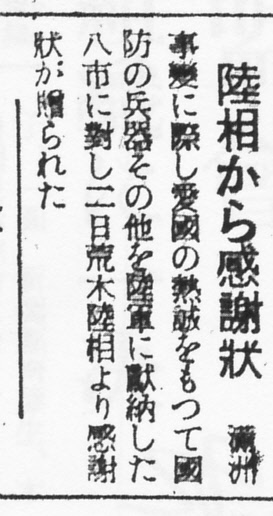 陸相から感謝狀
滿洲
事變に際し愛國の熱誠をもつて國
防の兵器その他を陸軍に獻納した
八市に對し二日荒木陸相より感謝
狀が贈られた